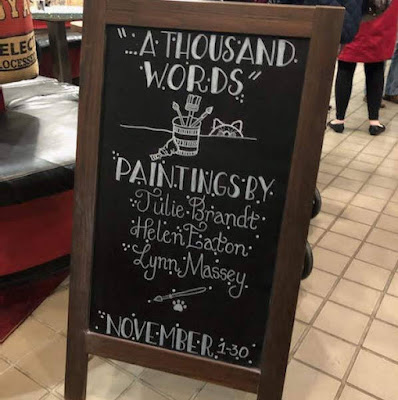 "...A THOUSAND
WORDS"
PAINTINGS BY
Julie Brandt
Helen Eaton
Lynn Massey
NOVEMBER 1-30